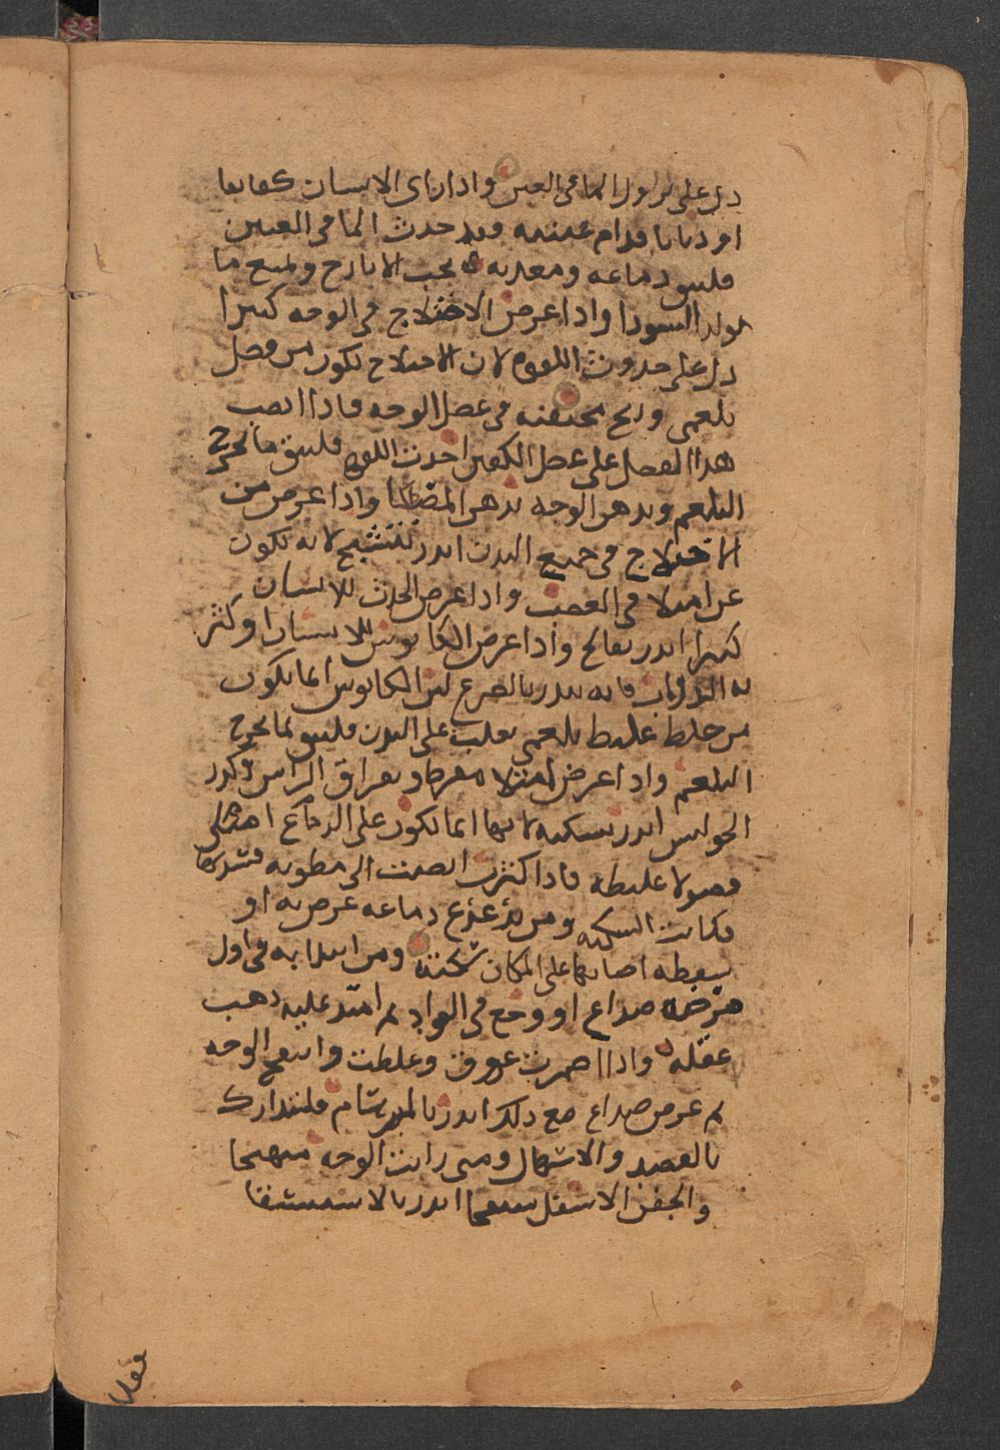 دل على نزول الما في العين واذا راى الانسان كفا بقا
او ذبابا قدام عينيه وقد حدث الما في العينين
فلينق دماغه ومعدته بحب الايارج ويمنع ما
يولد السودا واذا عرض الاختلاج في الوجه كثيرا
دل على حدوث اللقوه لان الاختلاج يكون من فضل
بلغمي وريح محتقنه في عضل الوجه فاذا انصب
هذا الفضل على عضل الكفين احدث اللقوه فلينق ما يخرج
البلغم ويدهن الوجه بدهن المصطكا واذا عرض من
الاختلاج في جميع البدن انذر بتشنج لانه يكون
عن امتلا في العصب واذا عرض الخدر للانسان
كثيرا انذر بفالج واذا عرض الكابوس للانسان او كثر
به الدوران فانه ينذر بالصرع لان الكابوس انما يكون
من خلط غليظ بلغمي يغلب على البدن فلينق بما يخرج
البلغم واذا عرض امتلا مفرط وبعراق الراس وكدر
الحواس انذر بسكته لانها انما تكون على الدماغ امتلى
فضولا غليظه فاذا كثرت انصبت الى بطونه فتسدها
فكانت السكته ومن تزعزع دماغه عن ضربه او
سقطه اصابها على المكان سكته ومن ابتدا به في اول
مرضه صداع او وجع في الفواد ثم امتد عليه ذهب
عقله واذا احمرت عروق وغلظت وانتفخ الوجه
ثم عرض صداع مع ذلك انذر بالبرسام فليتدارك
بالفصد والاسهال ومتى رايت الوجه متهيجا
والجفن الاسفل منتفخا انذر بالاستسقا
فعلا